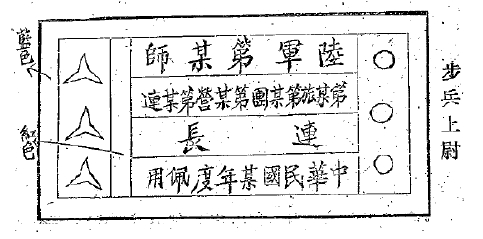 步兵上尉
陸軍第某師
第某旅第某團第某營第某連
連長
中華民國某年度佩用
藍色
紅色